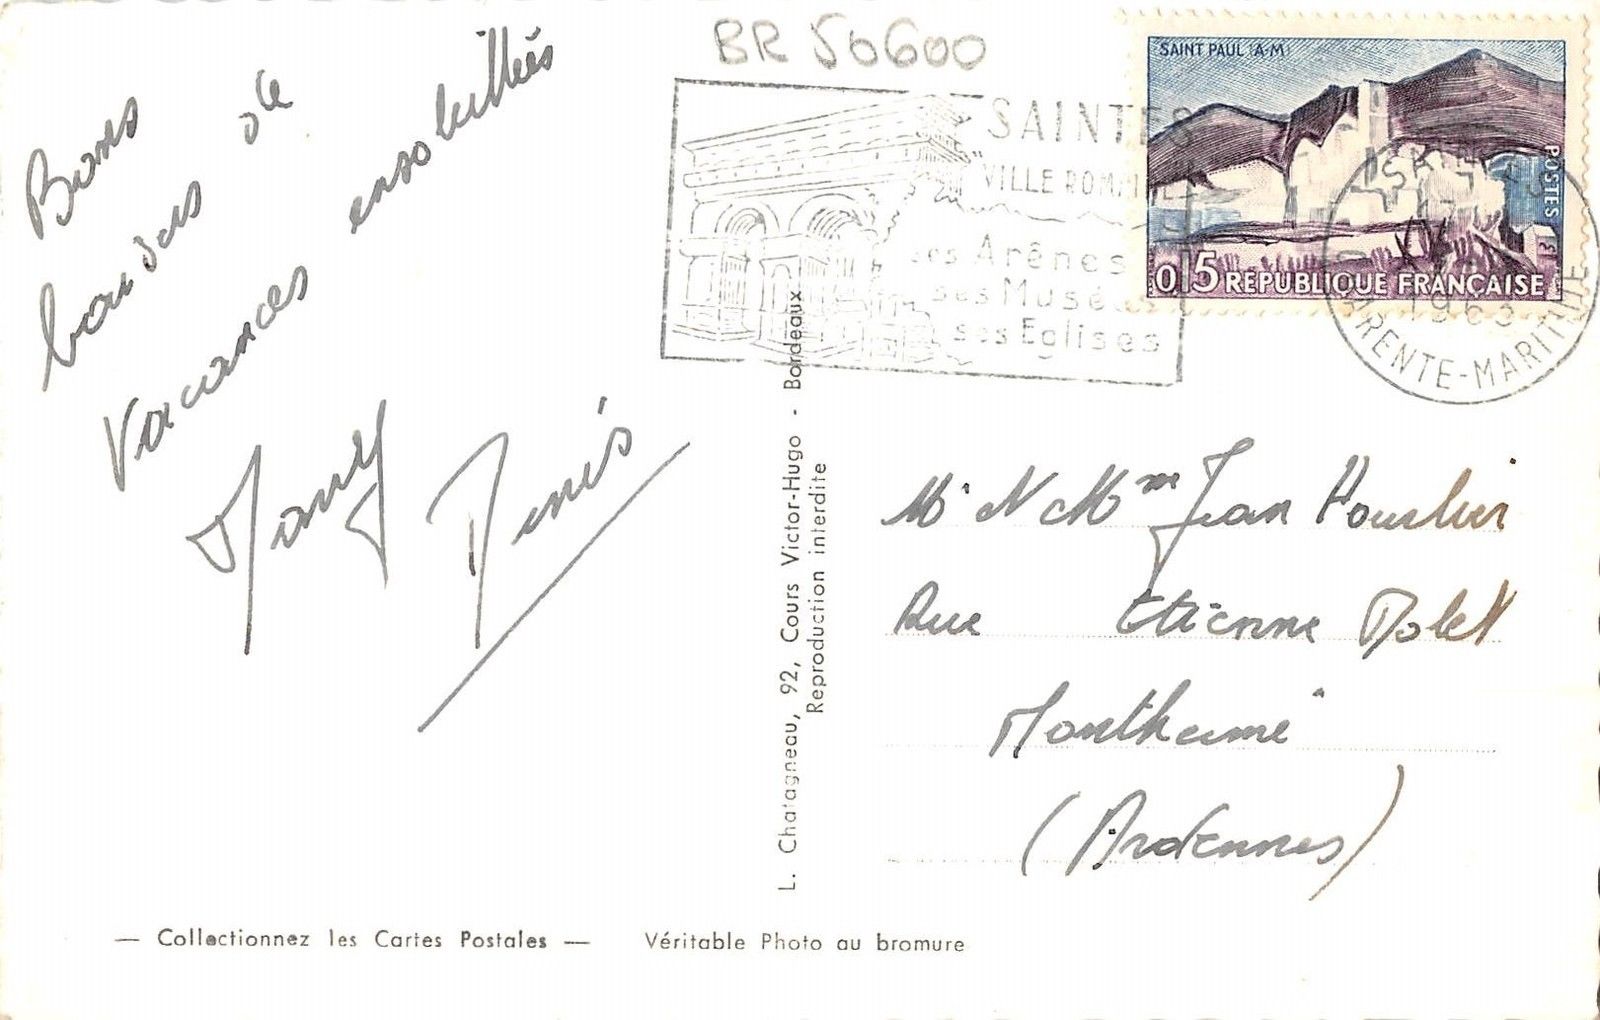 BR 56600
Bons
baisers de
vacances ensoleillées
Denis
SAINTES
"VILLE ROMAINE"
ses Arênes
ses Musées
ses Eglises
SAINT PAUL (A-M)
POSTES
0,15 REPUBLIQUE FRANÇAISE
SAINTES
1963
CHARENTE-MARITIME
Mr et Mme Jean
Rue Etienne Dolet
Monthermé
(Ardennes)
L. Chatagneau, 92, Cours Victor-Hugo - Bordeaux
Reproduction interdite
— Collectionnez les Cartes Postales —
Véritable Photo au bromure